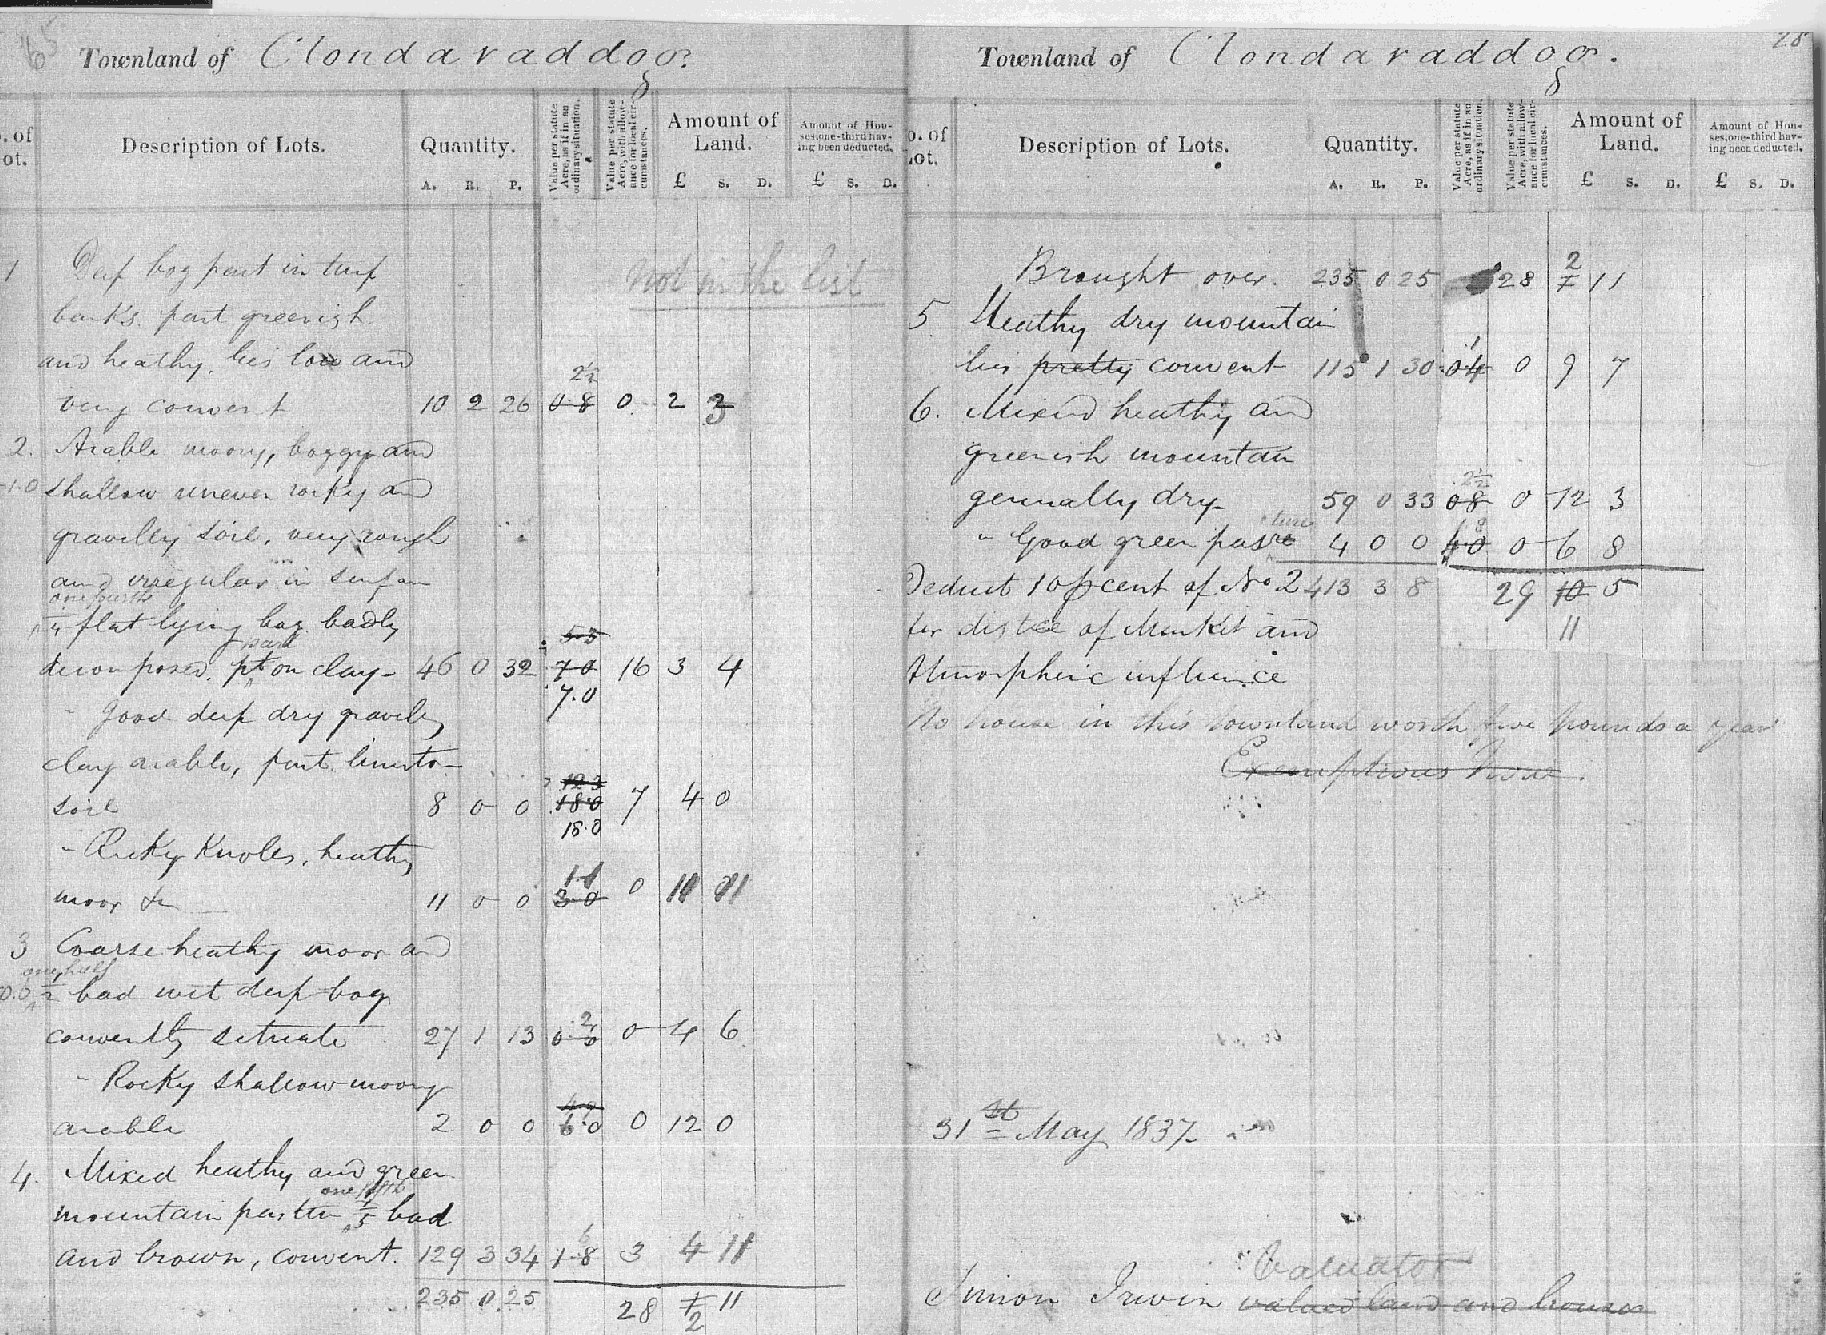 65
Townland of Clondaraddog.
No. of Lot.
Description of Lots.
Quantity.
A. R. P.
Value per statute Acre, as if in an ordinary situation.
Value per statute Acre, with allowance for local circumstances.
Amount of Land.
£ S. D.
Amount of Houses one-third having been deducted.
£ S. D.
Not in the list
1 Deep bog part in turf
banks. part greenish
and heathy. lies low and
2½
very convent 10 2 26 0 8 0 2 3
2. Arable moory, boggy and
shallow uneven rocky and
gravelly soil, very rough
and irregular in surface
one fourth
¼ flat lying bog badly
part
5 3
decomposed. pt on clay- 46 0 32 7 0 16 3 4
7.0
" Good deep dry gravelly
clay arable, part limesto-
12 3
soil 8 0 0 18 0 7 4 0
18.0
- Rocky Knoles, heathy
1.1
moor &c 11 0 0 3 0 0 11 11
3 Coarse heathy moor and
one half
½ bad wet deep bog
2
conventy situate 27 1 13 0 6 0 4 6
- Rocky shallow moory
arable 2 0 0 6 0 0 12 0
4. Mixed heathy and green
one fifth
mountain pastu ⅕ bad
6
and brown, convent. 129 3 34 1 8 3 4 11
235 0.25 28 1 11
2
28
Townland of Clondaraddog.
No. of Lot.
Description of Lots.
Quantity.
A. R. P.
Value per statute Acre, as if in an ordinary situation.
Value per statute Acre, with allowance for local circumstances.
Amount of Land.
£ S. D.
Amount of Houses one-third having been deducted.
£ S. D.
2
Brought over. 235 0 25 28 1 11
5 Heathy dry mountain
1
lies pretty convent 115 1 30 0 4 0 9 7
6. Mixed heathy and
greenish mountain
2½
generally dry- 59 0 33 0 8 0 12 3
ture
" Good green pasre 4 0 0 4 0 0 6 8
Deduct 10 p cent of No 2 413 3 8 29 10 5
for distce of Market and 11
Atmospheric influence
No house in this townland worth five pounds a year
Exemptions None.
31st May 1837-
Valuator
Simon Irwin valued land and houses